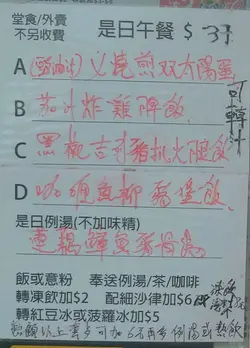 堂食/外賣
不另收費
是日午餐 $ 37
A (豉油汁) 义燒煎双太陽蛋
可轉汁
B 茄汁炸雞脾飯
C 黑椒吉司豬扒火腿飯
D 咖喱魚柳 飯
是日例湯(不加味精)
蓮藕 魚豬骨湯
飯或意粉 奉送例湯/茶/咖啡
轉凍飲加$2 配細沙律加$6
轉紅豆冰或菠蘿冰加$5
以上 可加6元 多例湯或熱飲